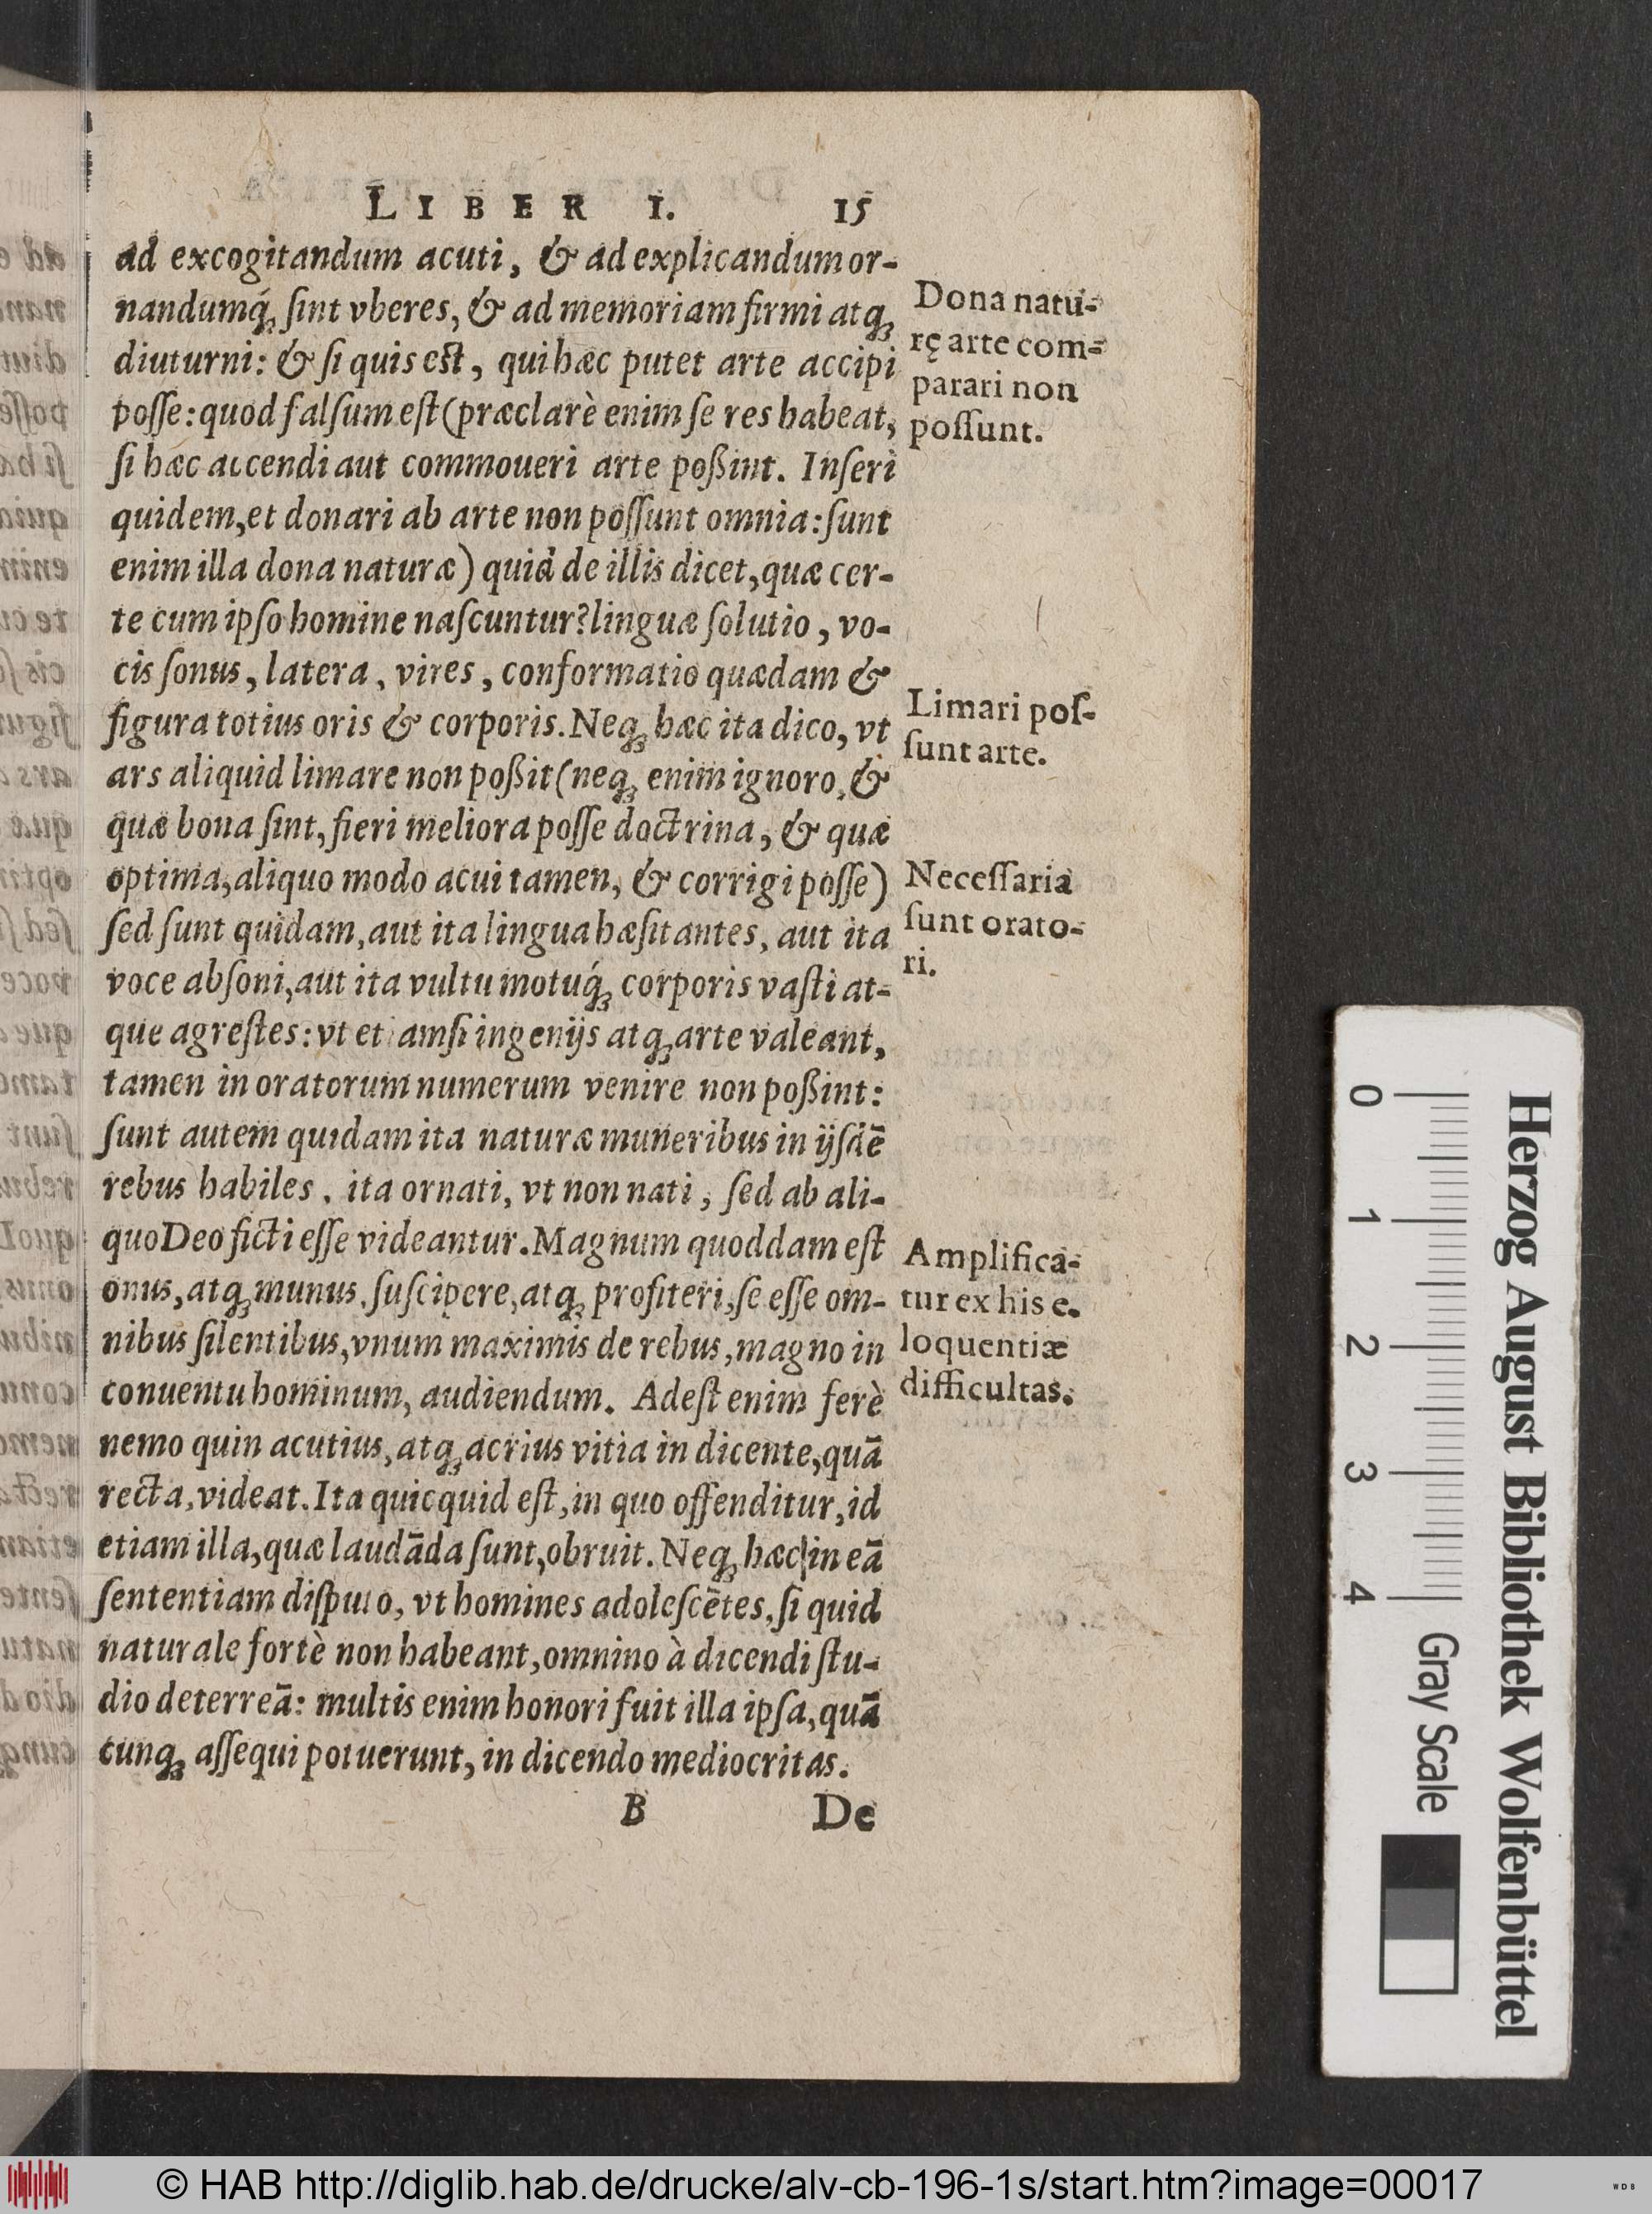 LIBER I. 15
ad excogitandum acuti, & ad explicandum or-
nandumq́ꝫ ſint vberes, & ad memoriam firmi atqꝫ
diuturni: & ſi quis eſt, qui hæc putet arte accipi
poſſe: quod falſum eſt (præclarè enim ſe res habeat,
ſi hæc accendi aut commoueri arte poßint. Inſeri
quidem, et donari ab arte non poſſunt omnia: ſunt
enim illa dona naturæ) quid de illis dicet, quæ cer-
te cum ipſo homine naſcuntur? linguæ ſolutio, vo-
cis ſonus, latera, vires, conformatio quædam &
figura totius oris & corporis. Neqꝫ hæc ita dico, vt
ars aliquid limare non poßit (neqꝫ enim ignoro, &
quæ bona ſint, fieri meliora poſſe doctrina, & quæ
optima, aliquo modo acui tamen, & corrigi poſſe)
ſed ſunt quidam, aut ita lingua hæſitantes, aut ita
voce abſoni, aut ita vultu motuq́ꝫ corporis vaſti at-
que agreſtes: vt etiamſi ingenijs atqꝫ arte valeant,
tamen in oratorum numerum venire non poßint:
ſunt autem quidam ita naturæ muneribus in ijſdē
rebus habiles, ita ornati, vt non nati, ſed ab ali-
quo Deo ficti eſſe videantur. Magnum quoddam eſt
onus, atqꝫ munus, ſuſcipere, atqꝫ profiteri, ſe eſſe om-
nibus ſilentibus, vnum maximis de rebus, magno in
conuentu hominum, audiendum. Adeſt enim ferè
nemo quin acutius, atqꝫ acrius vitia in dicente, quā
recta, videat. Ita quicquid eſt, in quo offenditur, id
etiam illa, quæ laudāda ſunt, obruit. Neqꝫ hæc in eā
ſententiam diſputo, vt homines adoleſcētes, ſi quid
naturale fortè non habeant, omnino à dicendi ſtu-
dio deterreā: multis enim honori fuit illa ipſa, quā
cunqꝫ aſſequi potuerunt, in dicendo mediocritas.
B De
Dona natu-
rę arte com-
parari non
poſſunt.
Limari poſ-
ſunt arte.
Neceſſaria
ſunt orato-
ri.
Amplifica-
tur ex his e-
loquentiæ
difficultas.
0 1 2 3 4 Gray Scale
Herzog August Bibliothek Wolfenbüttel
© HAB http://diglib.hab.de/drucke/alv-cb-196-1s/start.htm?image=00017
WDB